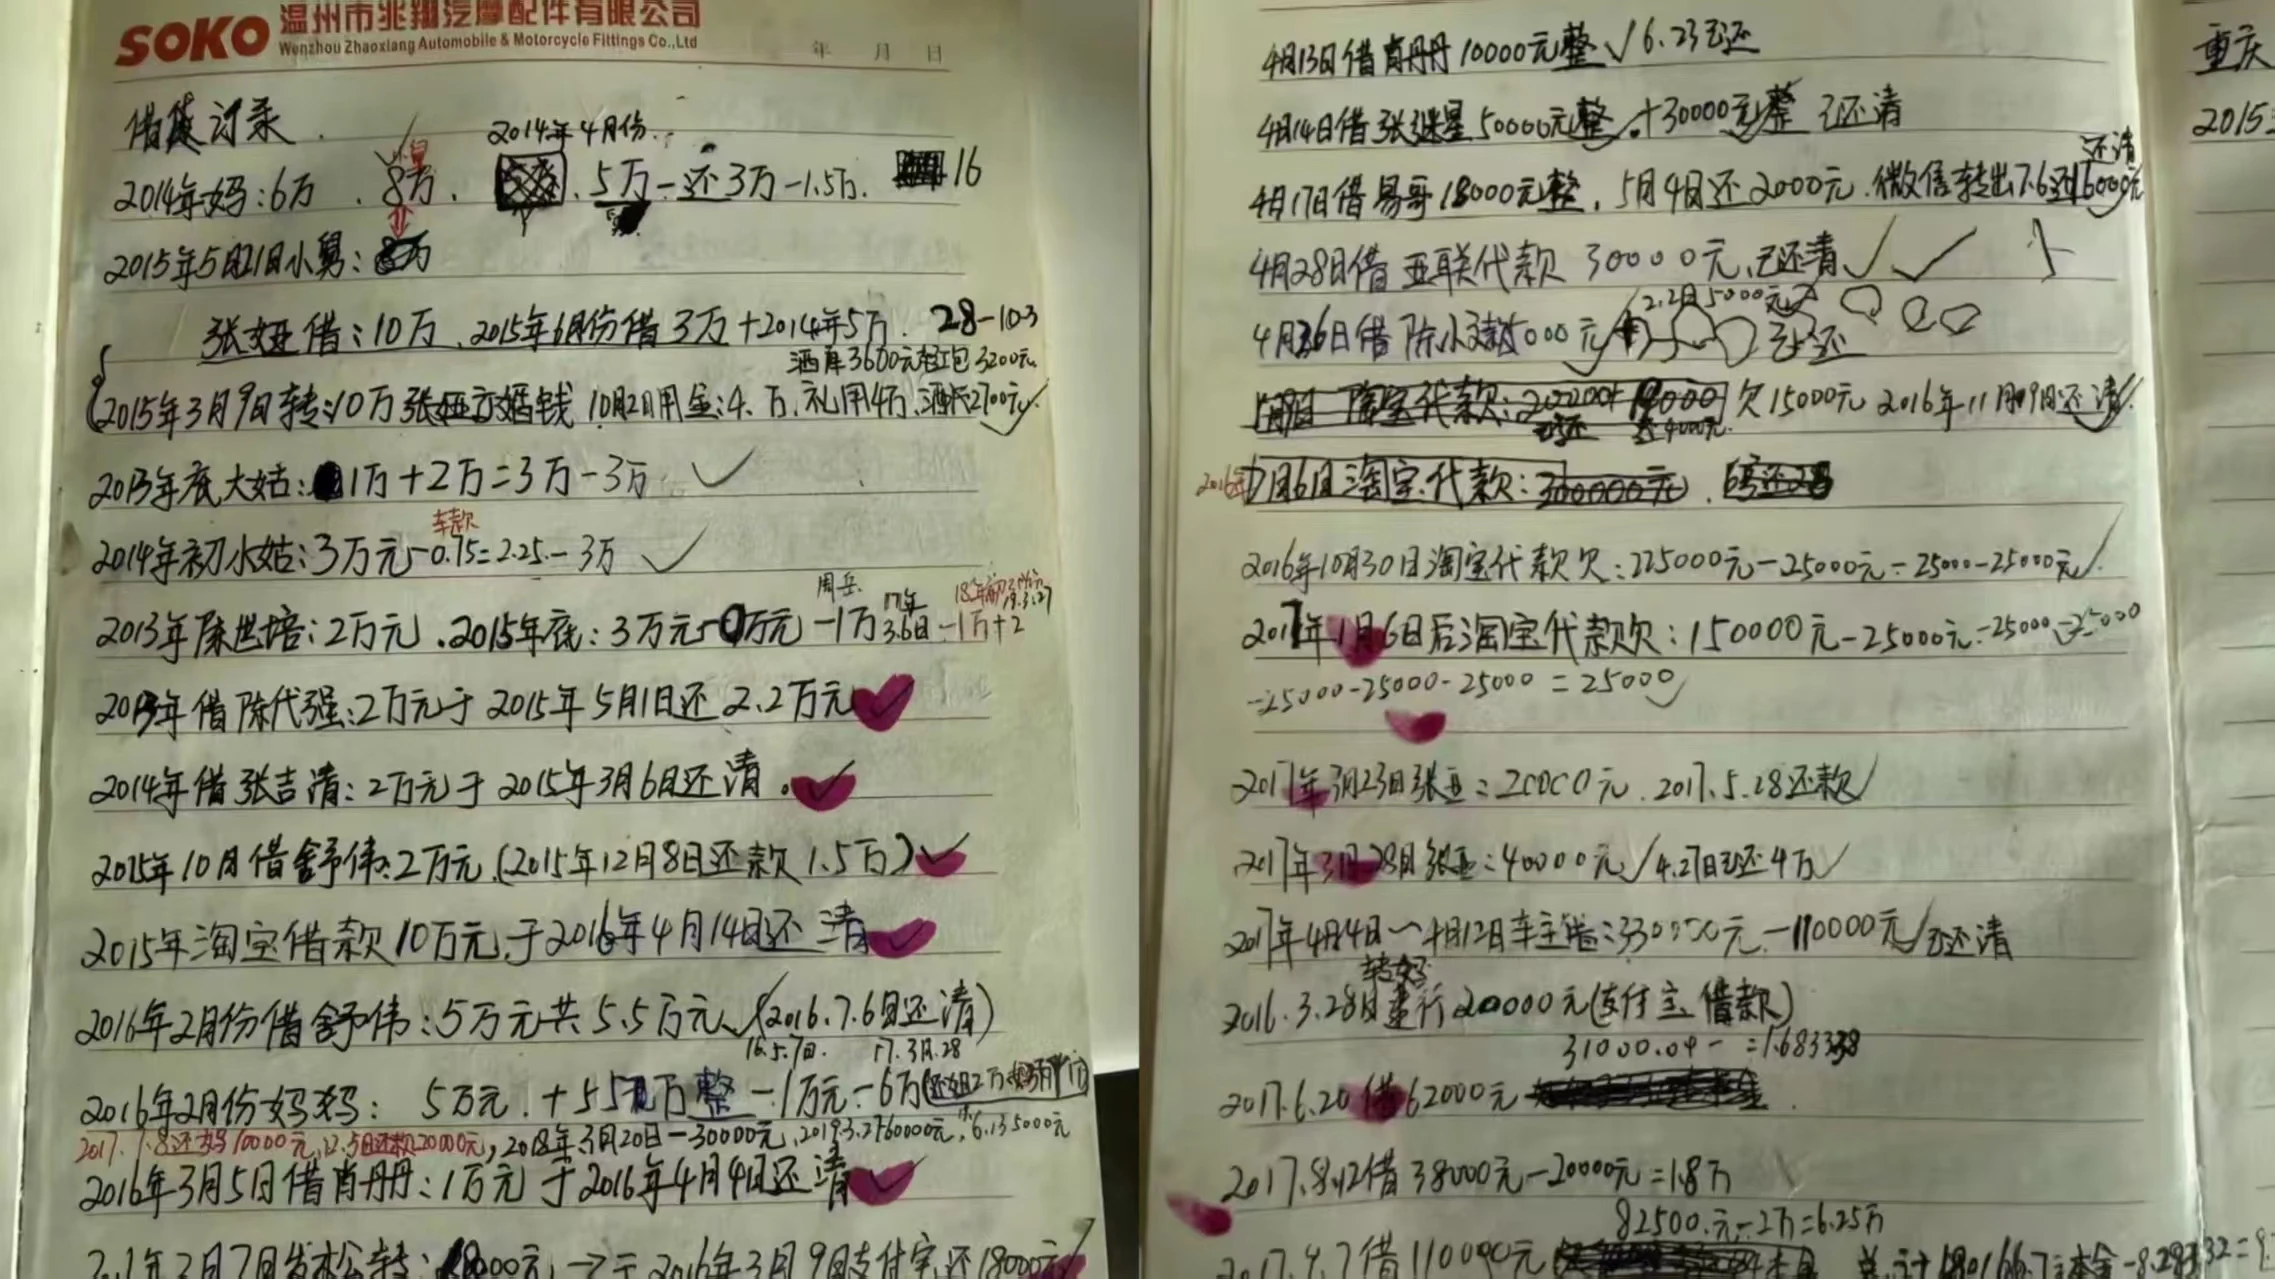 SOKO 温州市兆翔汽摩配件有限公司
Wenzhou Zhaoxiang Automobile & Motorcycle Fittings Co.,Ltd
年 月 日
借款记录
2014年4月份
2014年妈:6万 . 8万. 5万-还3万-1.5万. 16
2015年5月21日小舅:
张娅借:10万.2015年6月份借3万+2014年5万. 28-10-3
酒席3600元红包3200元
2015年3月9日转:10万张娅 婚钱 10月2日用金:4.万.礼用4万.酒 2700元
2013年底大姑:1万+2万=3万-3万 ✓
车款
2014年初小姑:3万元-0.75=2.25-3万 ✓
周岳 17年 19.3.27
2013年陈世培:2万元.2015年底:3万元- 万元-1万3.6日-1万+2
借陈代强:2万元于2015年5月1日还2.2万元✓
2014年借张吉清:2万元于2015年3月6日还清.✓
2015年10月借舒伟:2万元.(2015年12月8日还款1.5万)✓
2015年淘宝借款10万元.于2016年4月14日还清✓
2016年2月份借舒伟:5万元共5.5万元✓(2016.7.6日还清)
16.5.7日. 17.3月.28
2016年2月份妈妈: 5万元.+5 万整-1万元-6万
2017.7.8还妈10000元,12.5日还款20000元,2018年3月20日-30000元.2019.3.27 60000元,6.13 5000元
2016年3月5日借肖丹丹:1万元于2016年4月4日还清✓
2016年3月9日支付宝还18000元
4月13日借肖丹丹10000元整✓6.23已还
4月14日借张继星50000元整.+30000元整 已还清
还清
4月17日借易哥18000元整,5月4日还2000元.微信转出7.6还16000元
4月28日借亚联代款30000元.已还清✓✓
2.2日5000元
4月26日借陈小 5000元✓ 已还
淘宝代款: 欠15000元 2016年11月09日还清
2016年 月6日淘宝代款:300000元.
2016年10月30日淘宝代款欠:225000元-25000元-25000-25000元✓
2017年1月6日后淘宝代款欠:150000元-25000元-25000-25000
-25000-25000-25000=25000✓
2017年3月23日张亚:20000元.2017.5.28还款✓
2017年3月28日张亚:40000元✓4.27日已还4万✓
2017年4月4日~4月12日车主借:330000元-110000元✓已还清
转妈
2016.3.28日建行20000元(支付宝借款)
31000.04-
2017.6.20借62000元
2017.8.12借38000元-20000元=1.8万
82500.元-2万=6.25万
2017.9.7借110000元
重庆
2015